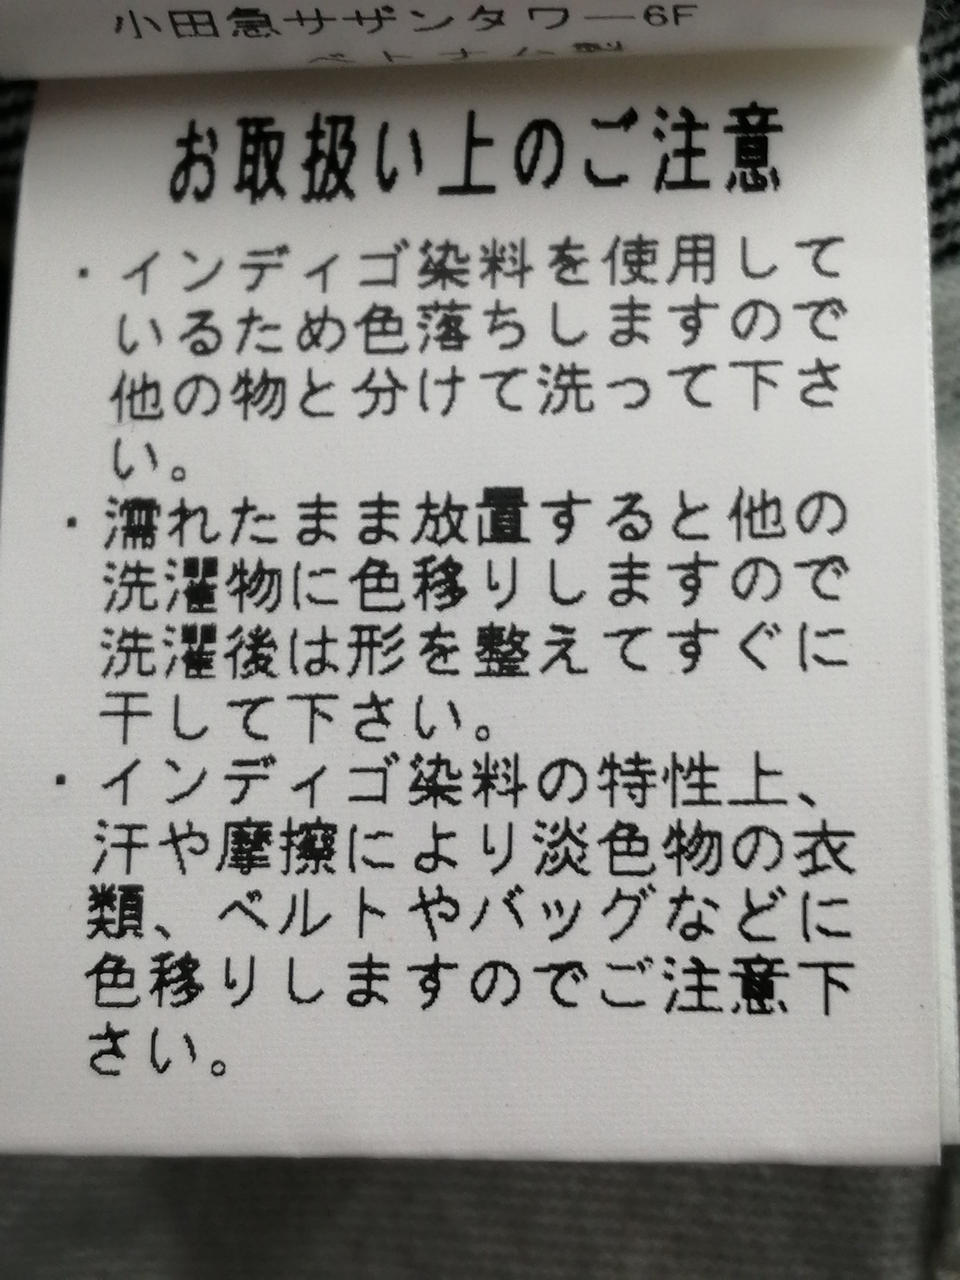 小田急サザンタワー6F
ベトナム製
お取扱い上のご注意
・インディゴ染料を使用して
いるため色落ちしますので
他の物と分けて洗って下さ
い。
・濡れたまま放置すると他の
洗濯物に色移りしますので
洗濯後は形を整えてすぐに
干して下さい。
・インディゴ染料の特性上、
汗や摩擦により淡色物の衣
類、ベルトやバッグなどに
色移りしますのでご注意下
さい。